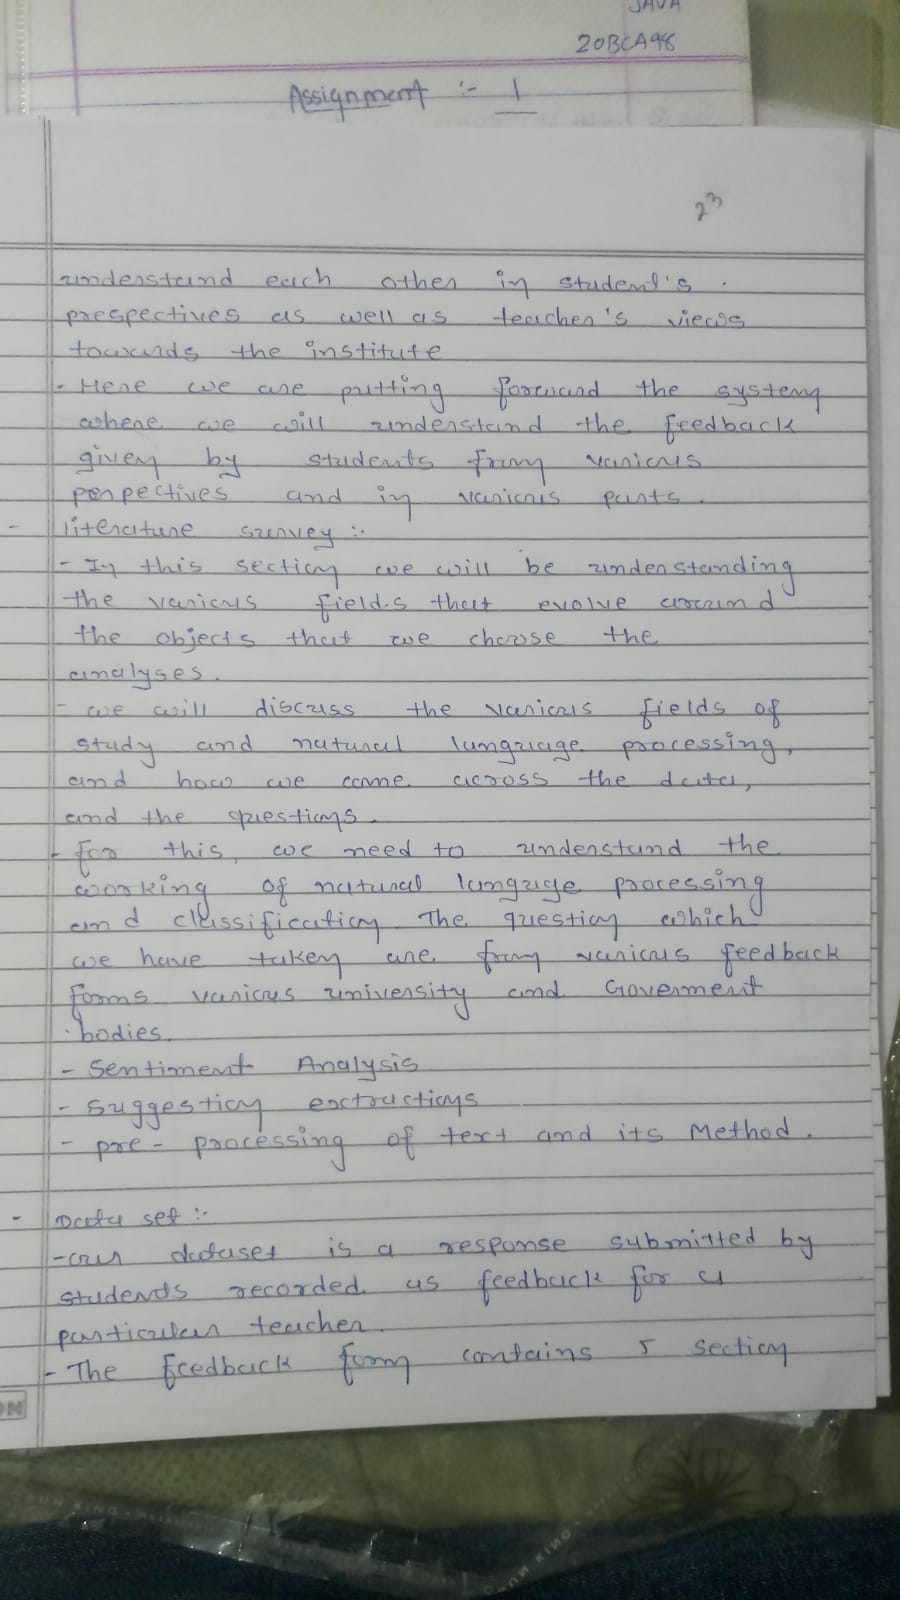 JAVA
20BCA98
Assignment :- 1
23
understand each other in student's.
prespectives as well as teacher's views
towards the institute
- Here we are putting forward the system
where we will understand the feedback
given by students from various
perpectives and in various parts.
- literature survey :-
- In this section we will be understanding
the various fields that evolve around
the objects that we choose the
analyses.
- we will discuss the various fields of
study and natural language processing,
and how we came across the data,
and the questions.
- for this, we need to understand the
working of natural language processing
and classification. The question which
we have taken are from various feedback
forms various university and Goverment
bodies.
- Sentiment Analysis
- Suggestion extractions
- pre-processing of text and its Method.
- Data set :-
- our dataset is a response submitted by
students recorded as feedback for a
particular teacher.
- The feedback form contains 5 section
ON
SUN KING
SUN KING